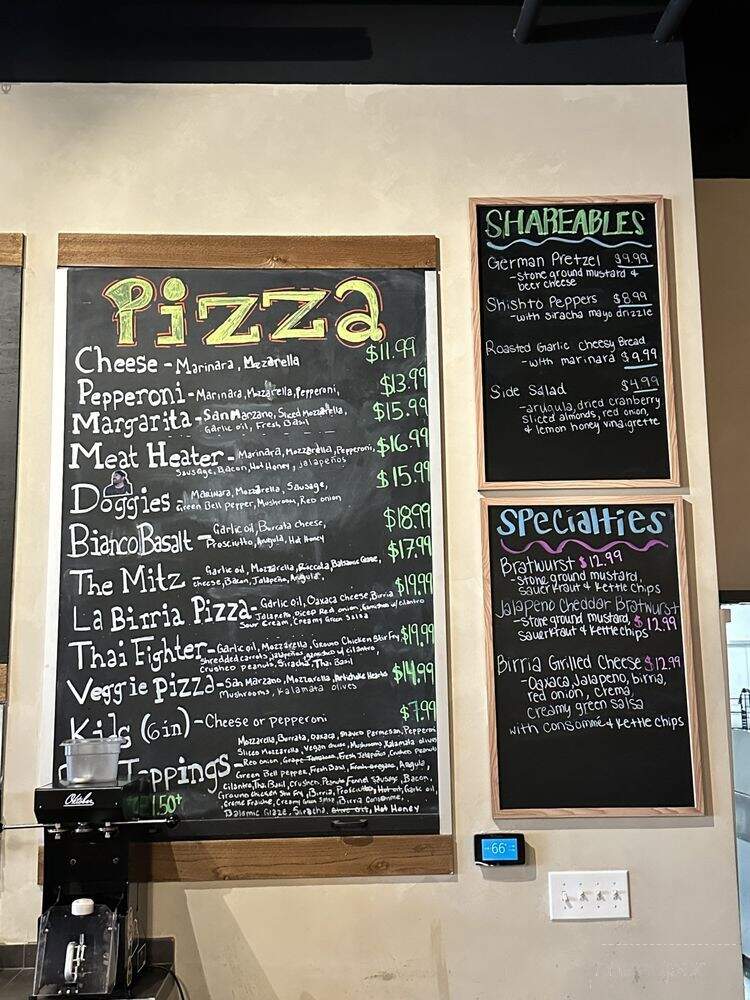 Pizza
Cheese - Marinara, Mozzarella $11.99
Pepperoni - Marinara, Mozzarella, Pepperoni, $13.99
Margarita - San Marzano, Sliced Mozzarella, $15.99
Garlic oil, Fresh Basil
Meat Heater - Marinara, Mozzarella, Pepperoni, $16.99
Sausage, Bacon, Hot Honey, jalapeños
Doggies - Marinara, Mozzarella, Sausage, $15.99
Green Bell Pepper, Mushroom, Red onion
Bianco Basalt - Garlic oil, Burrata cheese, $18.99
Prosciutto, Arugula, Hot Honey
The Mitz - Garlic oil, Mozzarella, Riccota, Balsamic Glaze, $17.99
cheese, Bacon, Jalapeño, Arugula,
La Birria Pizza - Garlic oil, Oaxaca Cheese, Birria $19.99
Jalapeño, Diced Red onion, Garnished w/ cilantro
Sour Cream, Creamy Green Salsa
Thai Fighter - Garlic oil, Mozzarella, Ground Chicken Stir Fry $19.99
Shredded carrots, jalapeños, garnished w/ cilantro,
crushed peanuts, Siracha, Thai Basil
Veggie Pizza - San Marzano, Mozzarella, Artichoke Hearts $14.99
Mushrooms, Kalamata olives
Kids (6in) - Cheese or pepperoni $7.99
Toppings
1.50+
Mozzarella, Burrata, Oaxaca, Shaved Parmesan, Pepperoni
Sliced Mozzarella, Vegan cheese, Mushrooms, Kalamata olives
Red onion, Grape Tomatoes, Fresh Jalapeños, Crushed Peanuts
Green Bell Pepper, Fresh Basil, Fresh oregano, Arugula,
Cilantro, Thai Basil, Crushed Peanuts, Fennel Sausage, Bacon,
Ground chicken Stir Fry, Birria, Prosciutto, Hot oil, Garlic oil,
Creme Fraiche, Creamy Green Salsa, Birria Consomme,
Balsmic Glaze, Siracha, Hot Honey
SHAREABLES
German Pretzel $9.99
- stone ground mustard &
beer cheese
Shishto Peppers $8.99
- with siracha mayo drizzle
Roasted Garlic Cheesy Bread
- with marinara $9.99
Side Salad $4.99
- arugula, dried cranberry
sliced almonds, red onion,
& lemon honey vinaigrette
Specialties
Bratwurst $12.99
- stone ground mustard,
sauerkraut & kettle chips
Jalapeno Cheddar Bratwurst
- stone ground mustard, $12.99
sauerkraut & kettle chips
Birria Grilled Cheese $12.99
- Oaxaca, Jalapeno, birria,
red onion, crema,
creamy green salsa
with consomme & kettle chips
66°